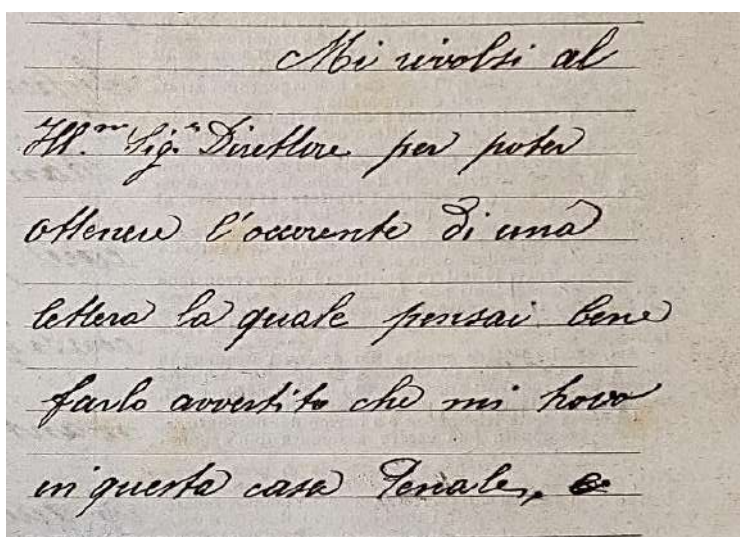 Mi rivolsi al
Ill.mo Sig.e Direttore per poter
ottenere l'occorente di una
lettera la quale pensai bene
farlo avvertito che mi trovo
in questa casa Penale, e